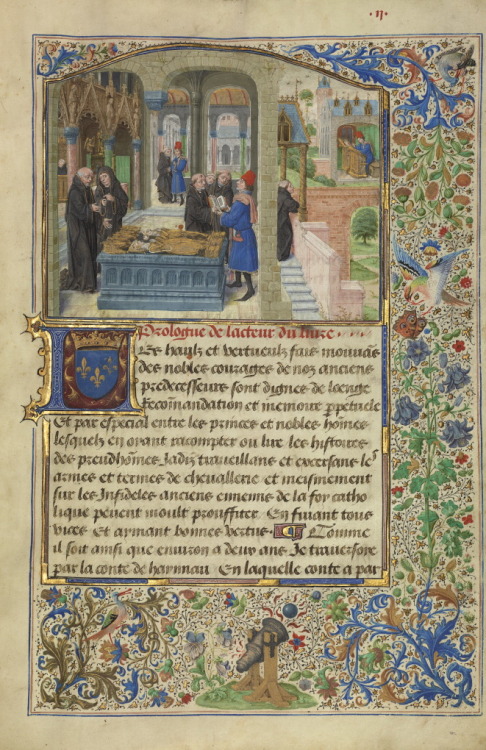 .ij.
Prologue de lacteur du liure
Les haulz et vertueulz fais mouuās
des nobles courages de noz anciens
predecesseurs sont dignes de loenge
Recōmandation et memoire ppetuele
Et par especial entre les princes et nobles hōmes
lesquelz en oyant racompter ou lire les histoires
des preudhōmes Jadiz trauueillans et excersans les
armes et termes de cheuallerie et meismement
sur les Infideles anciens ennemis de la foy catho
lique peuent moult prouffiter En fuiant tous
vices Et aymant bonnes vertus ¶ Comme
il soit ainsi que enuiron a deux ans Je trauersoye
par la conte de haynnau En laquelle conte a par